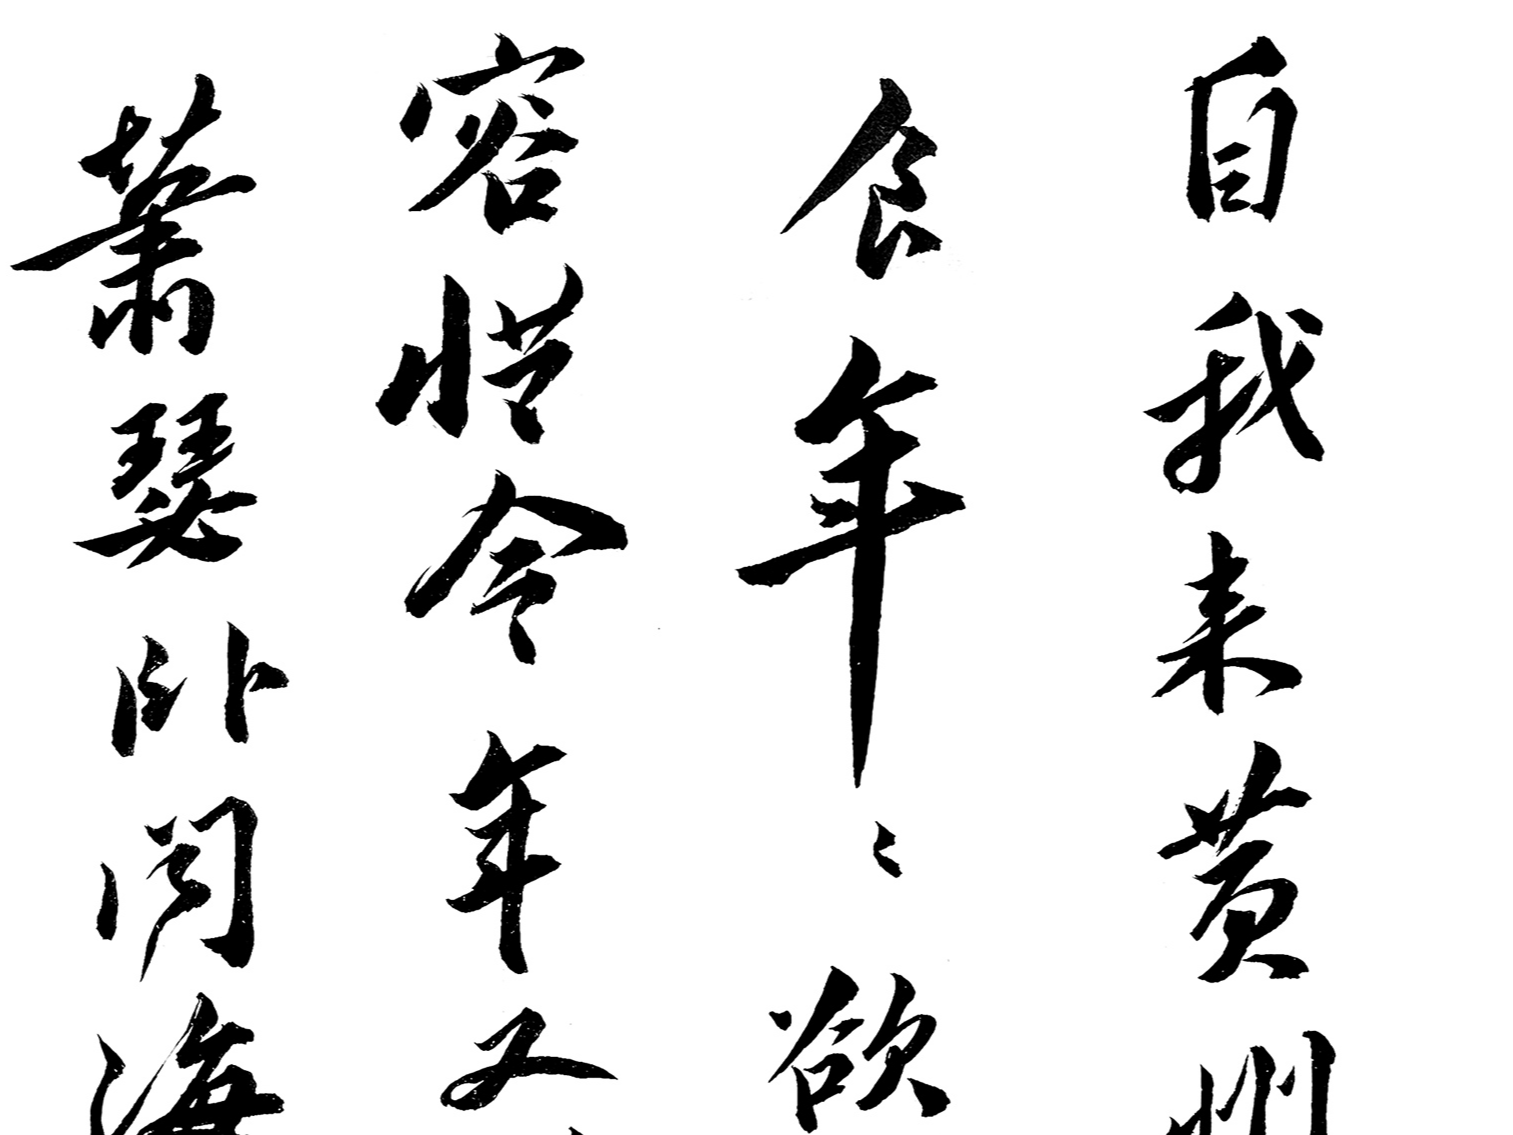 自我来黄州
食年〻欲
容惜今年又
萧瑟卧闻海